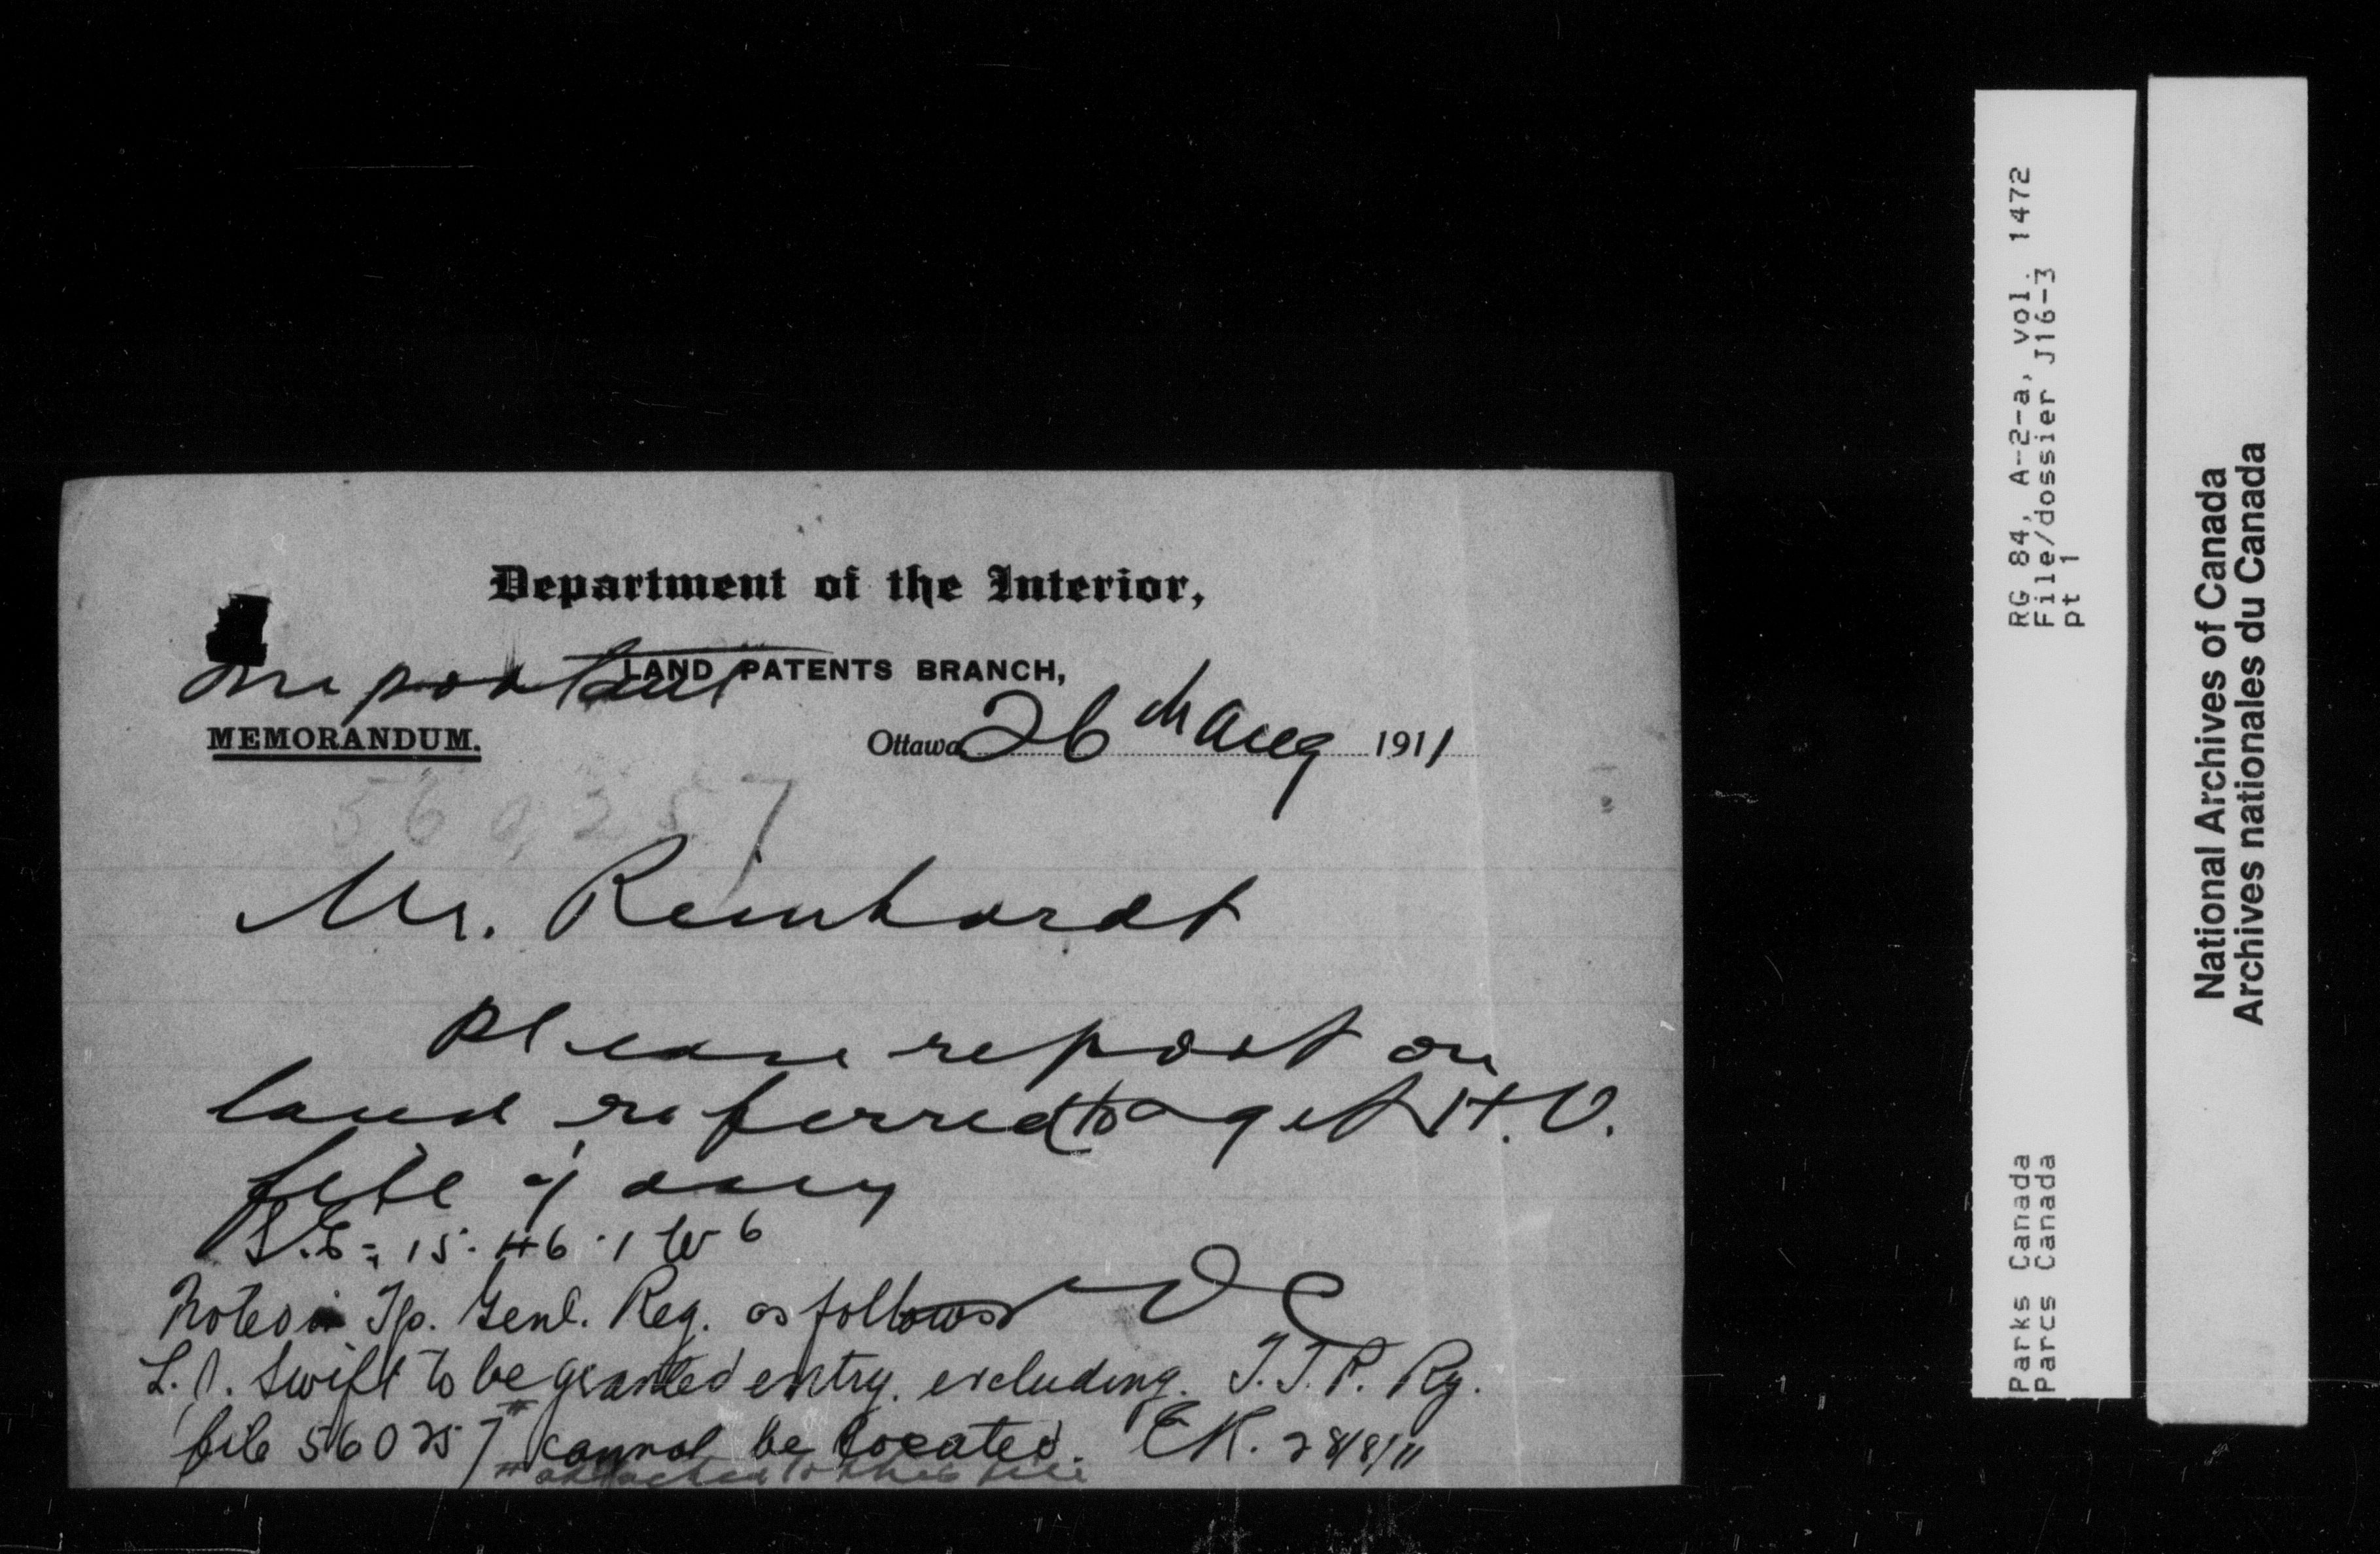 Department of the Interior,
LAND PATENTS BRANCH,
Important
MEMORANDUM.
Ottawa 26th Aug 1911
560257
Mr. Reinhardt
Please report on
land referred to & get H.O.
file if any
S.E. 15. 46. 1 W 6
Notes in Tp. Genl. Reg. as follows
L. J. Swift to be granted entry. excluding. G.T.P. Ry.
file 560257 # cannot be located. EK. 28/8/11
# attached to this file
RG 84, A-2-a, vol. 1472
File/dossier J16-3
pt 1
Parks Canada
Parcs Canada
National Archives of Canada
Archives nationales du Canada